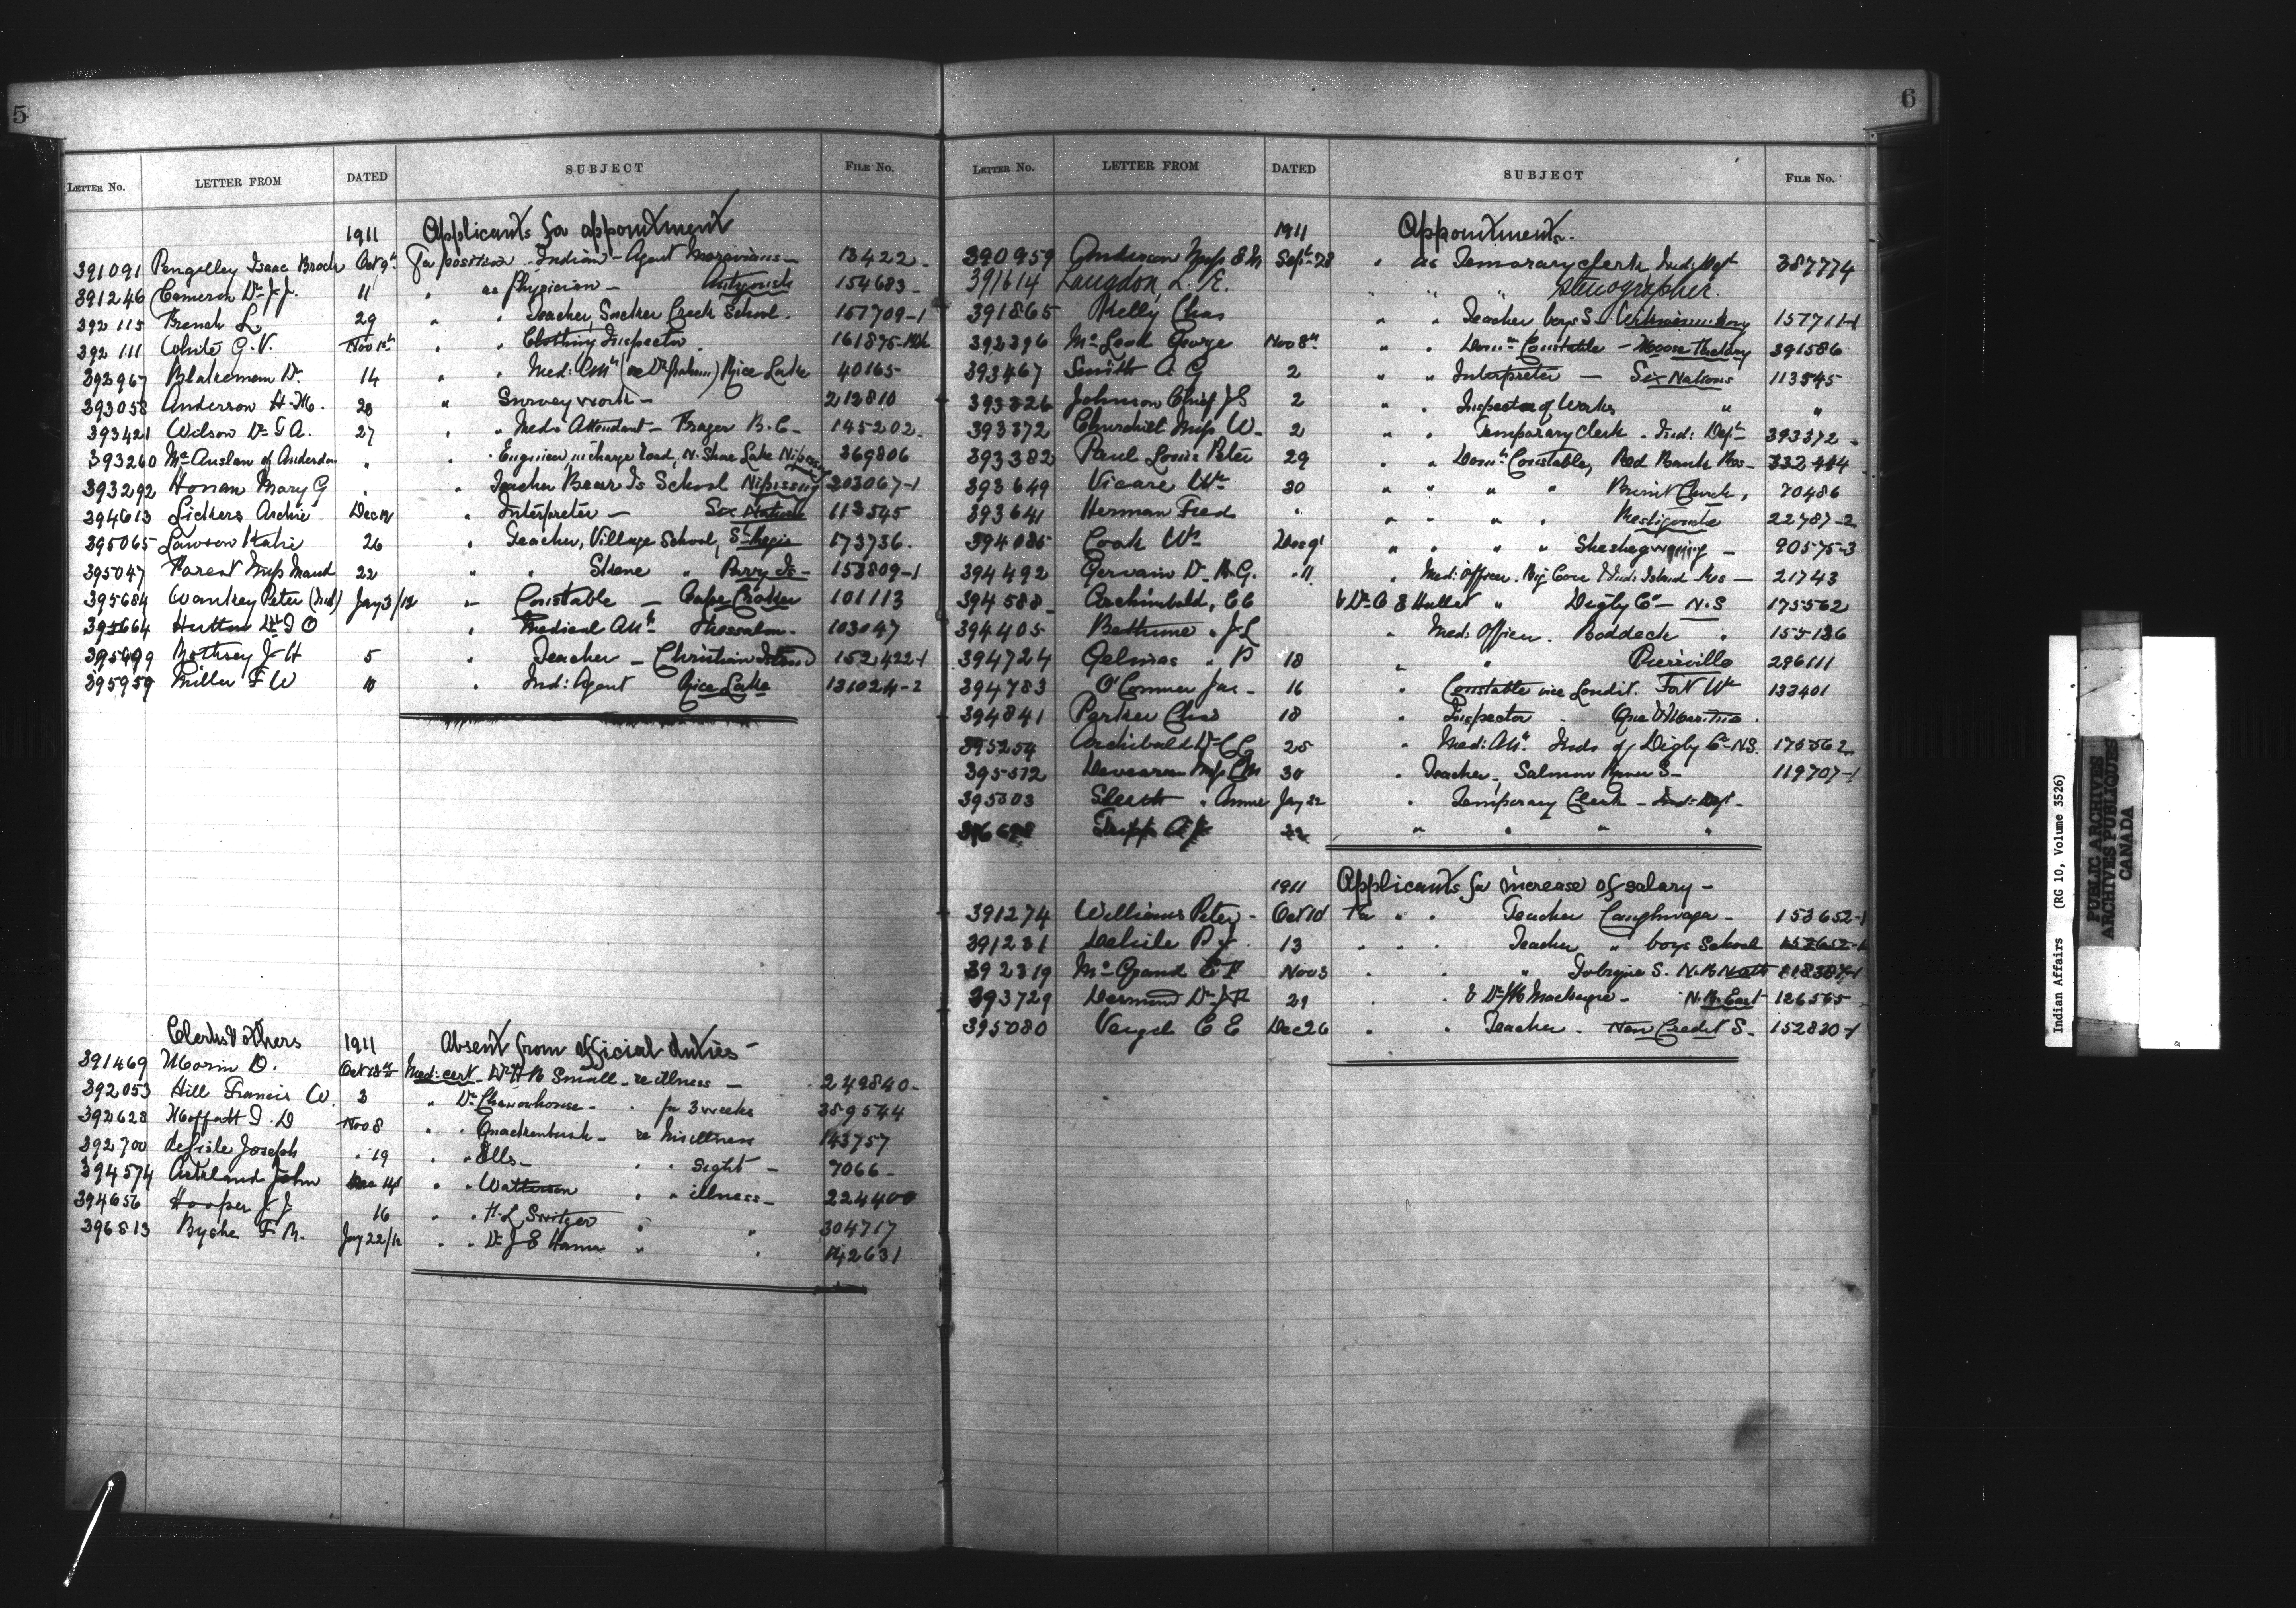 5
LETTER No. LETTER FROM DATED SUBJECT FILE No.
1911 Applicants for appointment
391091 Pengelley Isaac Brock Oct 9th For position Indian Agent Moravians - 13422 -
391246 Cameron Dr J.J. 11 " as Physician - Antigonish 154683 -
392115 French L 29 " " Teacher, Sucker Creek School. 157709-1
392111 White G.V. Nov 1st " " Clothing Inspector 161875-
392967 Blakeman D. 14 " " Med: Att (as Dr ) Rice Lake 40165
393058 Anderson H.M. 20 " Survey work - 212810
393421 Wilson Dr G A. 27 " " Med: Attendant - Frager B.C. - 145202 -
393260 of Anderdon " " Engineer in charge road, N. Shore Lake Nipissing 369806
393292 Honan Mary G " " Teacher Bear Is School Nipissing 203067-1
394613 Lickers Archie Dec 12 " Interpreter - Six Nations 113545
395065 Lawson Katie 26 " Teacher, Village School, St Regis 173736.
395047 Forest Miss Maud 22 " " Skene " Parry Is - 153809-1
395684 Wankey Peter (Ind) Jay 3/12 " Constable - Cape Croker 101113
395664 Hutton Dr J O " Medical Att Thessalon - 103047
J H 5 " Teacher - Christian Island 152422-1
395959 Miller F W 10 " Ind: Agent Rice Lake 131024-2
Clerks & others 1911 Absent from official duties -
391469 Morin D. Oct 18th Med: cert - Dr H B Small - re illness - 249840 -
392053 Hill Francis W. 3 " Dr - " for 3 weeks 389544
392628 Moffatt T. D Nov 8 " " Quackenbush - re his illness 143757
392700 deLisle Joseph " 19 " " Ells - " " sight - 7066 -
394574 Ackland John Dec 14 " " Watterson " " illness - 224400
394656 Hooper J J. 16 " " H.L Switzer " " 304717
396813 Byshe F M. Jay 22/12 " " Dr J E Hanna " " 142631
6
LETTER No. LETTER FROM DATED SUBJECT FILE No.
1911 Appointments.
390959 Anderson Miss E M Sept 28 " as Temorary clerk Ind: Dept 387774
391614 Langdon, L. E. " " " Stenographer.
391865 Kelly Chas " " Teacher boys S - 157711-1
392396 McLeod George Nov 8th " " Domn Constable - Moose Factory 391586
393467 Smith A G 2 " " Interpreter - Six Nations 113545
393326 Johnson Chief J S 2 " " Inspector of Works " "
393372 Churchill Miss W - 2 " " Temporary Clerk - Ind: Dept 393372 -
393382 Paul Louis Peter 29 " " Domn Constable, Red Bank Res - 332
393649 Vicare Wm 30 " " " " Burnt Church, 70486
393641 Herman Fred " " " " " Restigouche 22787-2
394085 Cook Wm Dec 9 " " " " Sheshegwaning - 90575-3
394492 Gervain Dr A.G. " 11 " Med: Officer, Res - 21743
394588 - Archimbald, C C & Dr C E Hallet " Digby Co - N.S 175562
394405 Bethune " J L " Med: Officer. Baddeck " 155186
394724 Gelinas " P 18 " " Pierrville 296111
394783 O'Connor Jas - 16 " Constable vice Loudit. Fort Wm 133401
394841 Parker Chas 18 " Inspector " Que & Maritime.
395254 Archibald Dr C C 25 " Med: Att. Inds of Digby Co - N.S. 175562
395512 Miss C M 30 " Teacher, Salmon River S - 119707-1
395303 " Annie Jay 22 " Temporary Clerk - Ind: Dept -
Tripp A J 22 " " " "
1911 Applicants for increase of salary -
391274 Williams Peter - Oct 10 For " " Teacher Caughnwaga - 153652-1
391231 Delisle P J. 13 " " " Teacher " boys School
392319 C F Nov 3 " " " S.
393729 Desmond Dr J F 21 " & Dr Mackenzie - N.B. East 126565
395080 Veugel C E Dec 26 " " Teacher - New Credit S - 152830-1
Indian Affairs (RG 10, Volume 3526)
PUBLIC ARCHIVES
ARCHIVES PUBLIQUES
CANADA